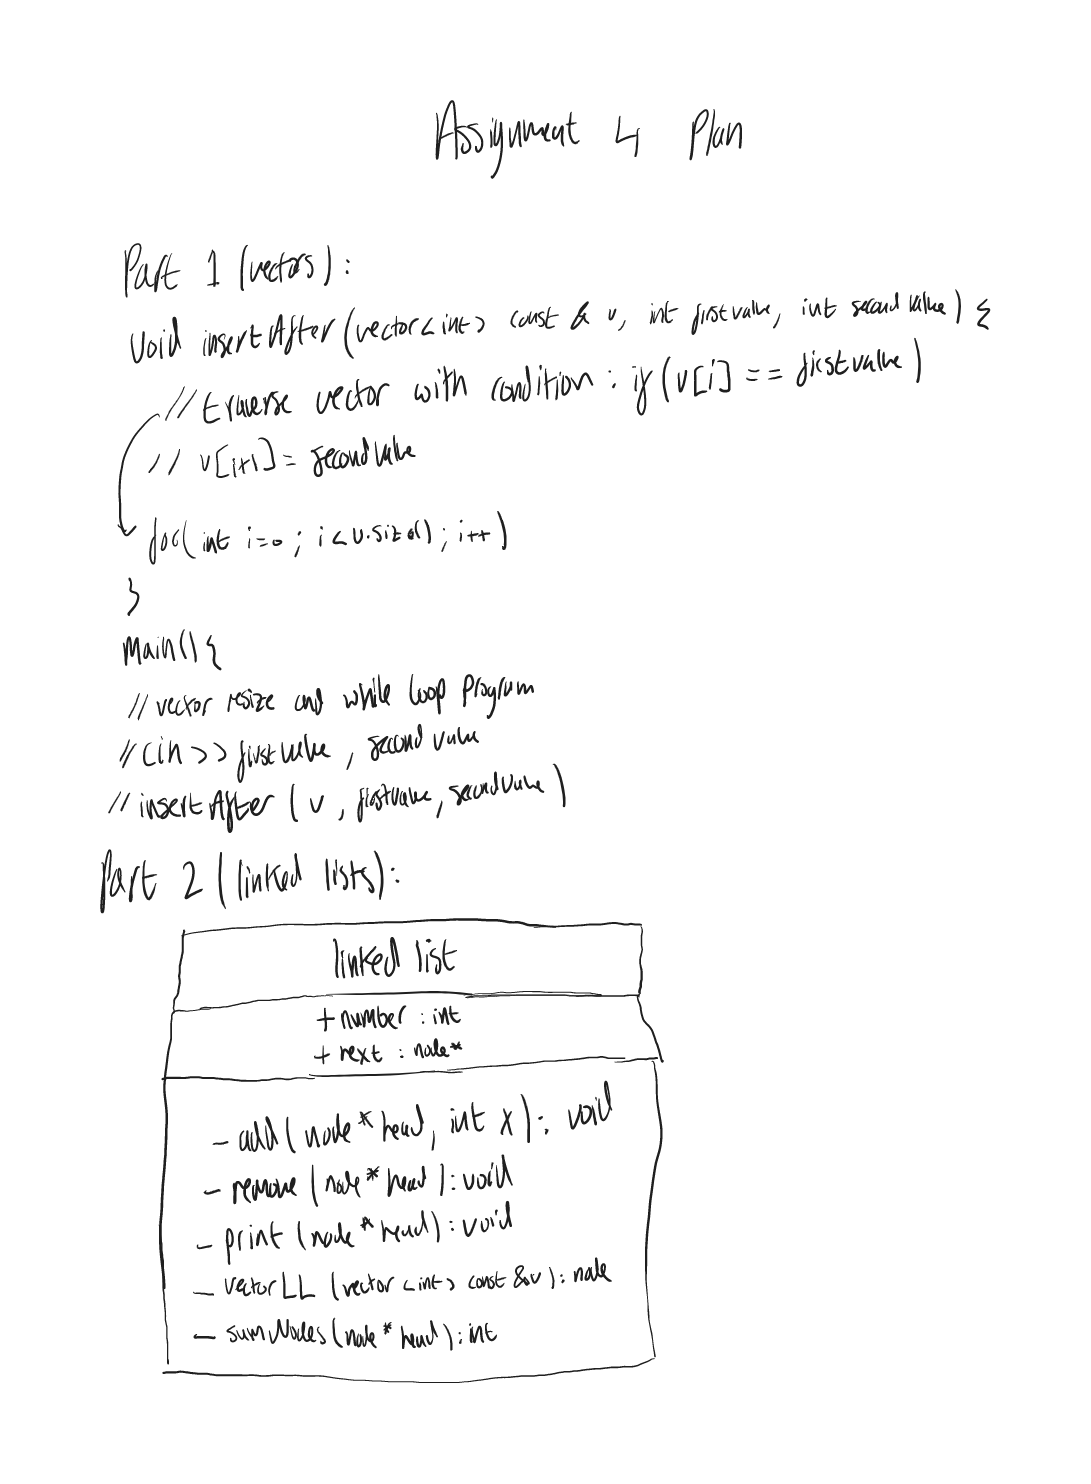 Assignment 4 Plan
Part 1 (vectors):
Void insertAfter(vector<int> const & v, int firstvalue, int secondvalue) {
// traverse vector with condition: if (v[i] == firstvalue)
// v[i+1] = secondvalue
for(int i=0; i<v.size(); i++)
}
main(){
// vector resize and while loop program
// cin >> firstvalue, second value
// insertAfter (v, firstvalue, secondvalue)
Part 2 (linked lists):
linked list
+ number : int
+ next : node*
- add(node* head, int x): void
- remove (node* head): void
- print (node* head): void
- vectorLL (vector<int> const &v): node
- sumNodes(node* head): int